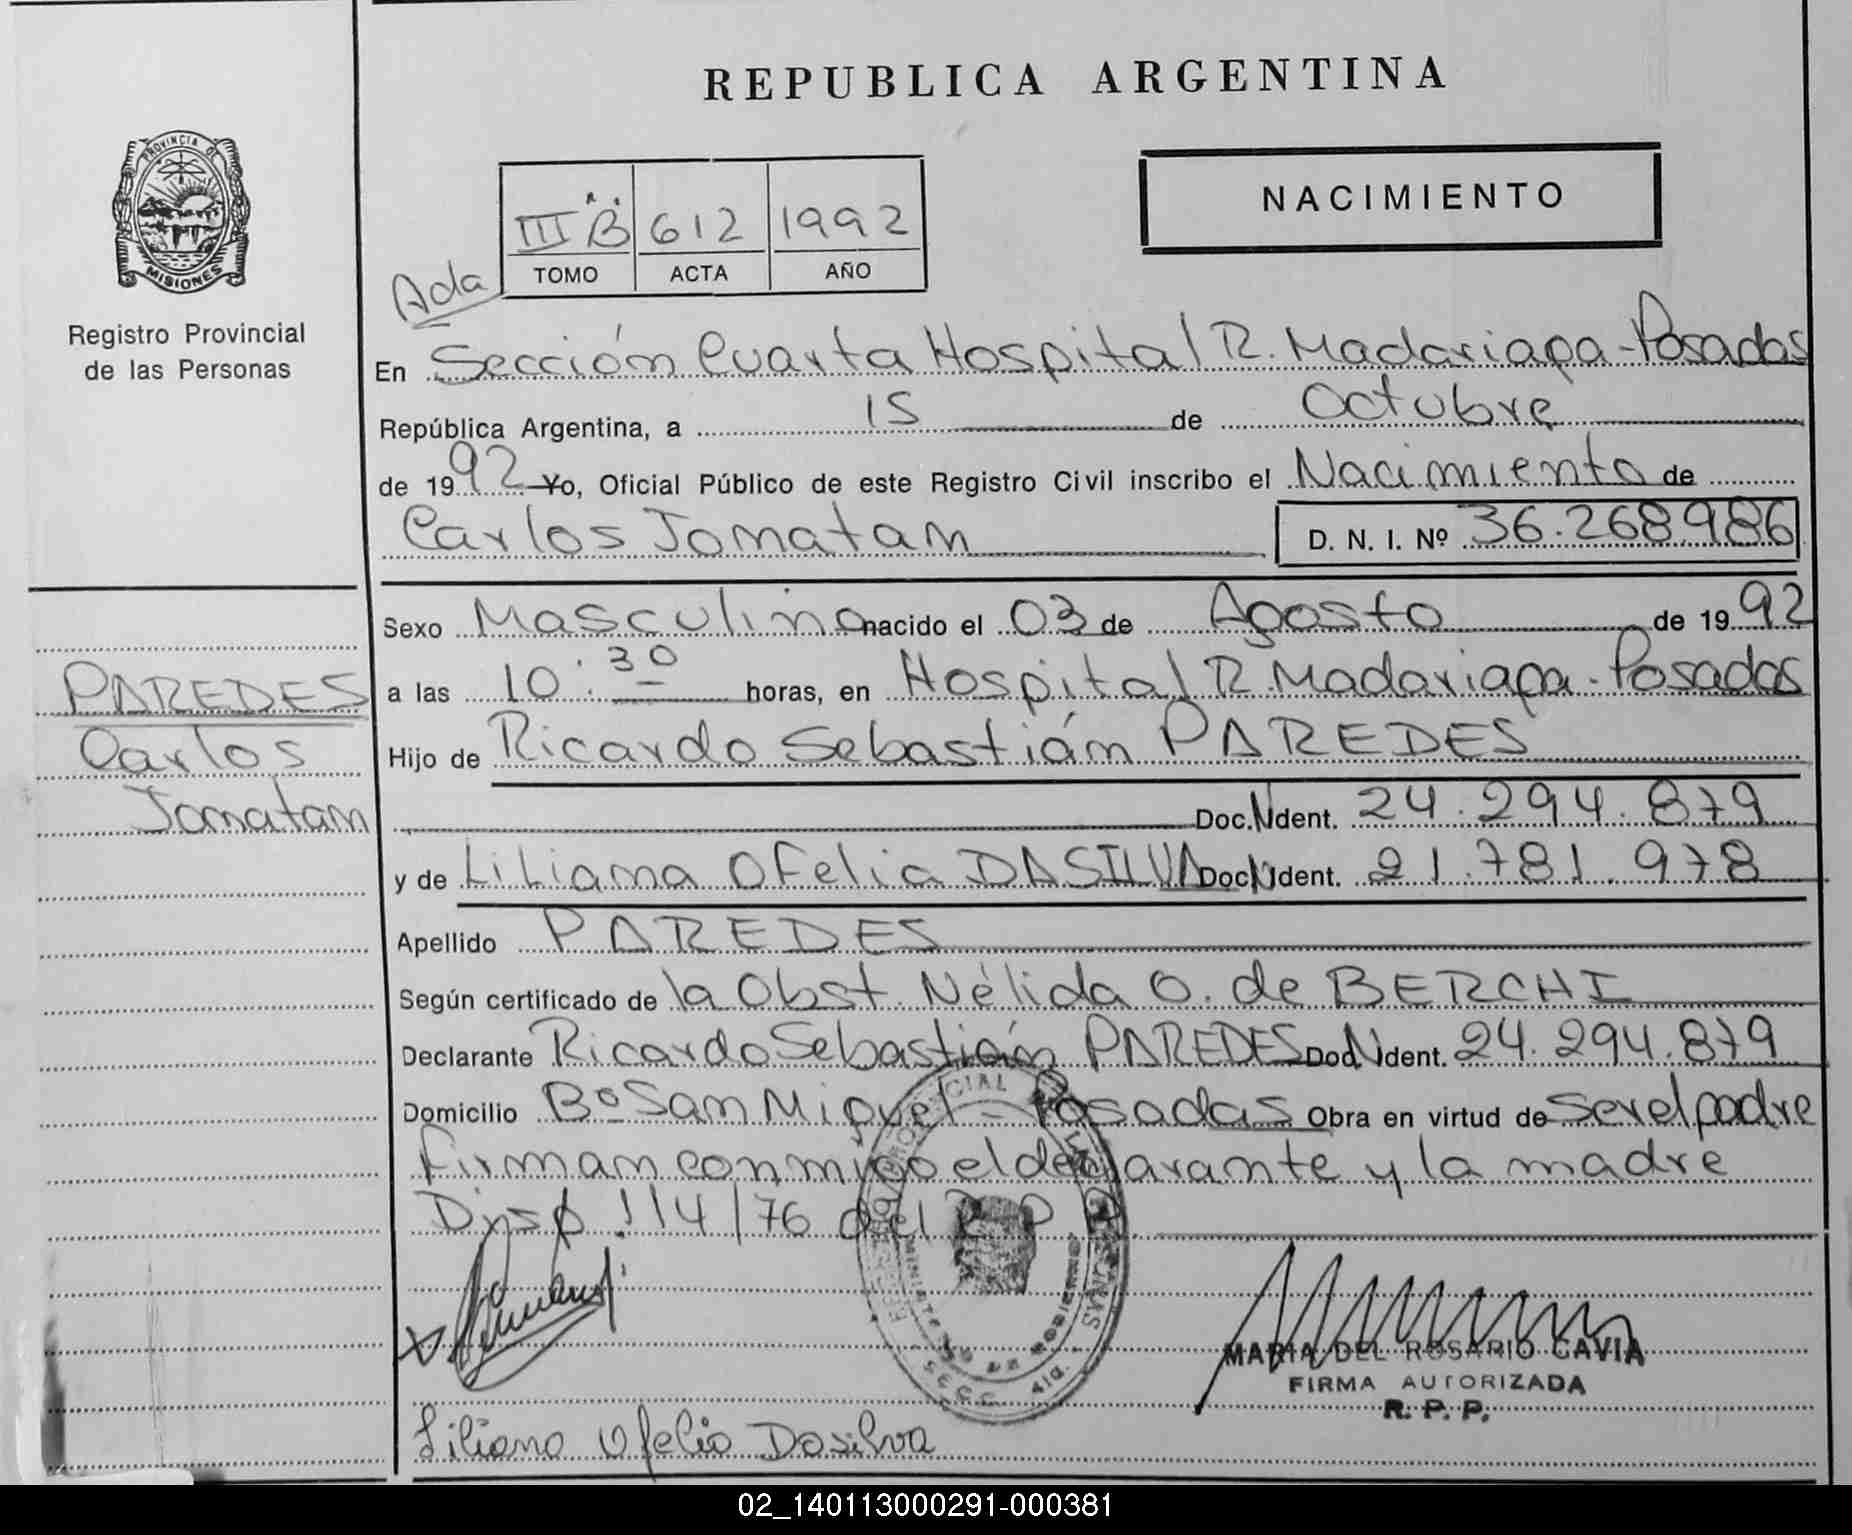 REPUBLICA ARGENTINA
PROVINCIA DE
MISIONES
Registro Provincial
de las Personas
NACIMIENTO
III "B" 612 1992
TOMO ACTA AÑO
Ada
En Sección Cuarta Hospital R. Madariaga - Posadas
República Argentina, a 15 de Octubre
de 1992 Yo, Oficial Público de este Registro Civil inscribo el Nacimiento de
Carlos Jonatan D. N. I. Nº 36.268.986
Sexo Masculino nacido el 03 de Agosto de 1992
a las 10:30 horas, en Hospital R. Madariaga - Posadas
Hijo de Ricardo Sebastián PAREDES
Doc. N Ident. 24.294.879
y de Liliana Ofelia DASILVA Doc. N Ident. 21.781.978
Apellido PAREDES
Según certificado de la Obst. Nélida O. de BERCHI
Declarante Ricardo Sebastián PAREDES Doc. N Ident. 24.294.879
Domicilio Bº San Miguel - Posadas Obra en virtud de ser el padre
Firman conmigo el declarante y la madre
Disp. 114/76 del R.P.P.
PAREDES
Carlos
Jonatan
MARIA DEL ROSARIO CAVIA
FIRMA AUTORIZADA
R. P. P.
Liliana Ofelia Dasilva
02_140113000291-000381